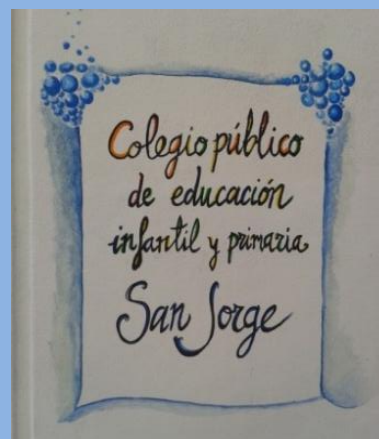 Colegio público
de educación
infantil y primaria
San Jorge